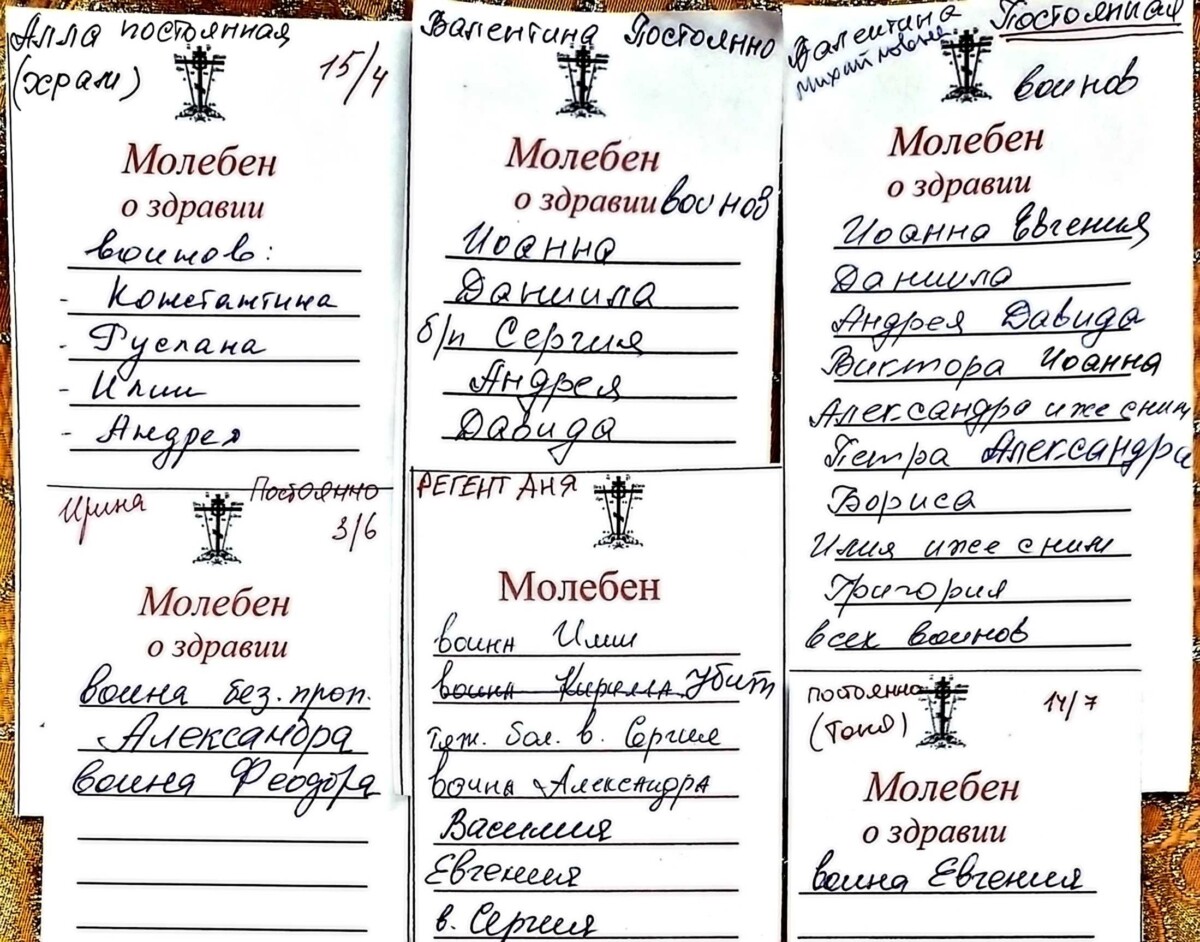 Алла постоянная
(храм)
15/4
Молебен
о здравии
воинов:
- Константина
- Руслана
- Илии
- Андрея
Валентина Постоянно
Молебен
о здравии воинов
Иоанна
Даниила
б/п Сергия
Андрея
Давида
Валентина Постоянная
Михайловна
воинов
Молебен
о здравии
Иоанна Евгения
Даниила
Андрея Давида
Виктора Иоанна
Александра иже с ним
Петра Александра
Бориса
Илия иже с ним
Григория
всех воинов
Ирина
Постоянно
3/6
Молебен
о здравии
воина без. проп.
Александра
воина Феодора
РЕГЕНТ АНЯ
Молебен
воина Илии
воина Кирилла Убит
тяж. бол. в. Сергия
воина Александра
Василия
Евгения
в. Сергия
постоянно
(Таня)
14/7
Молебен
о здравии
воина Евгения